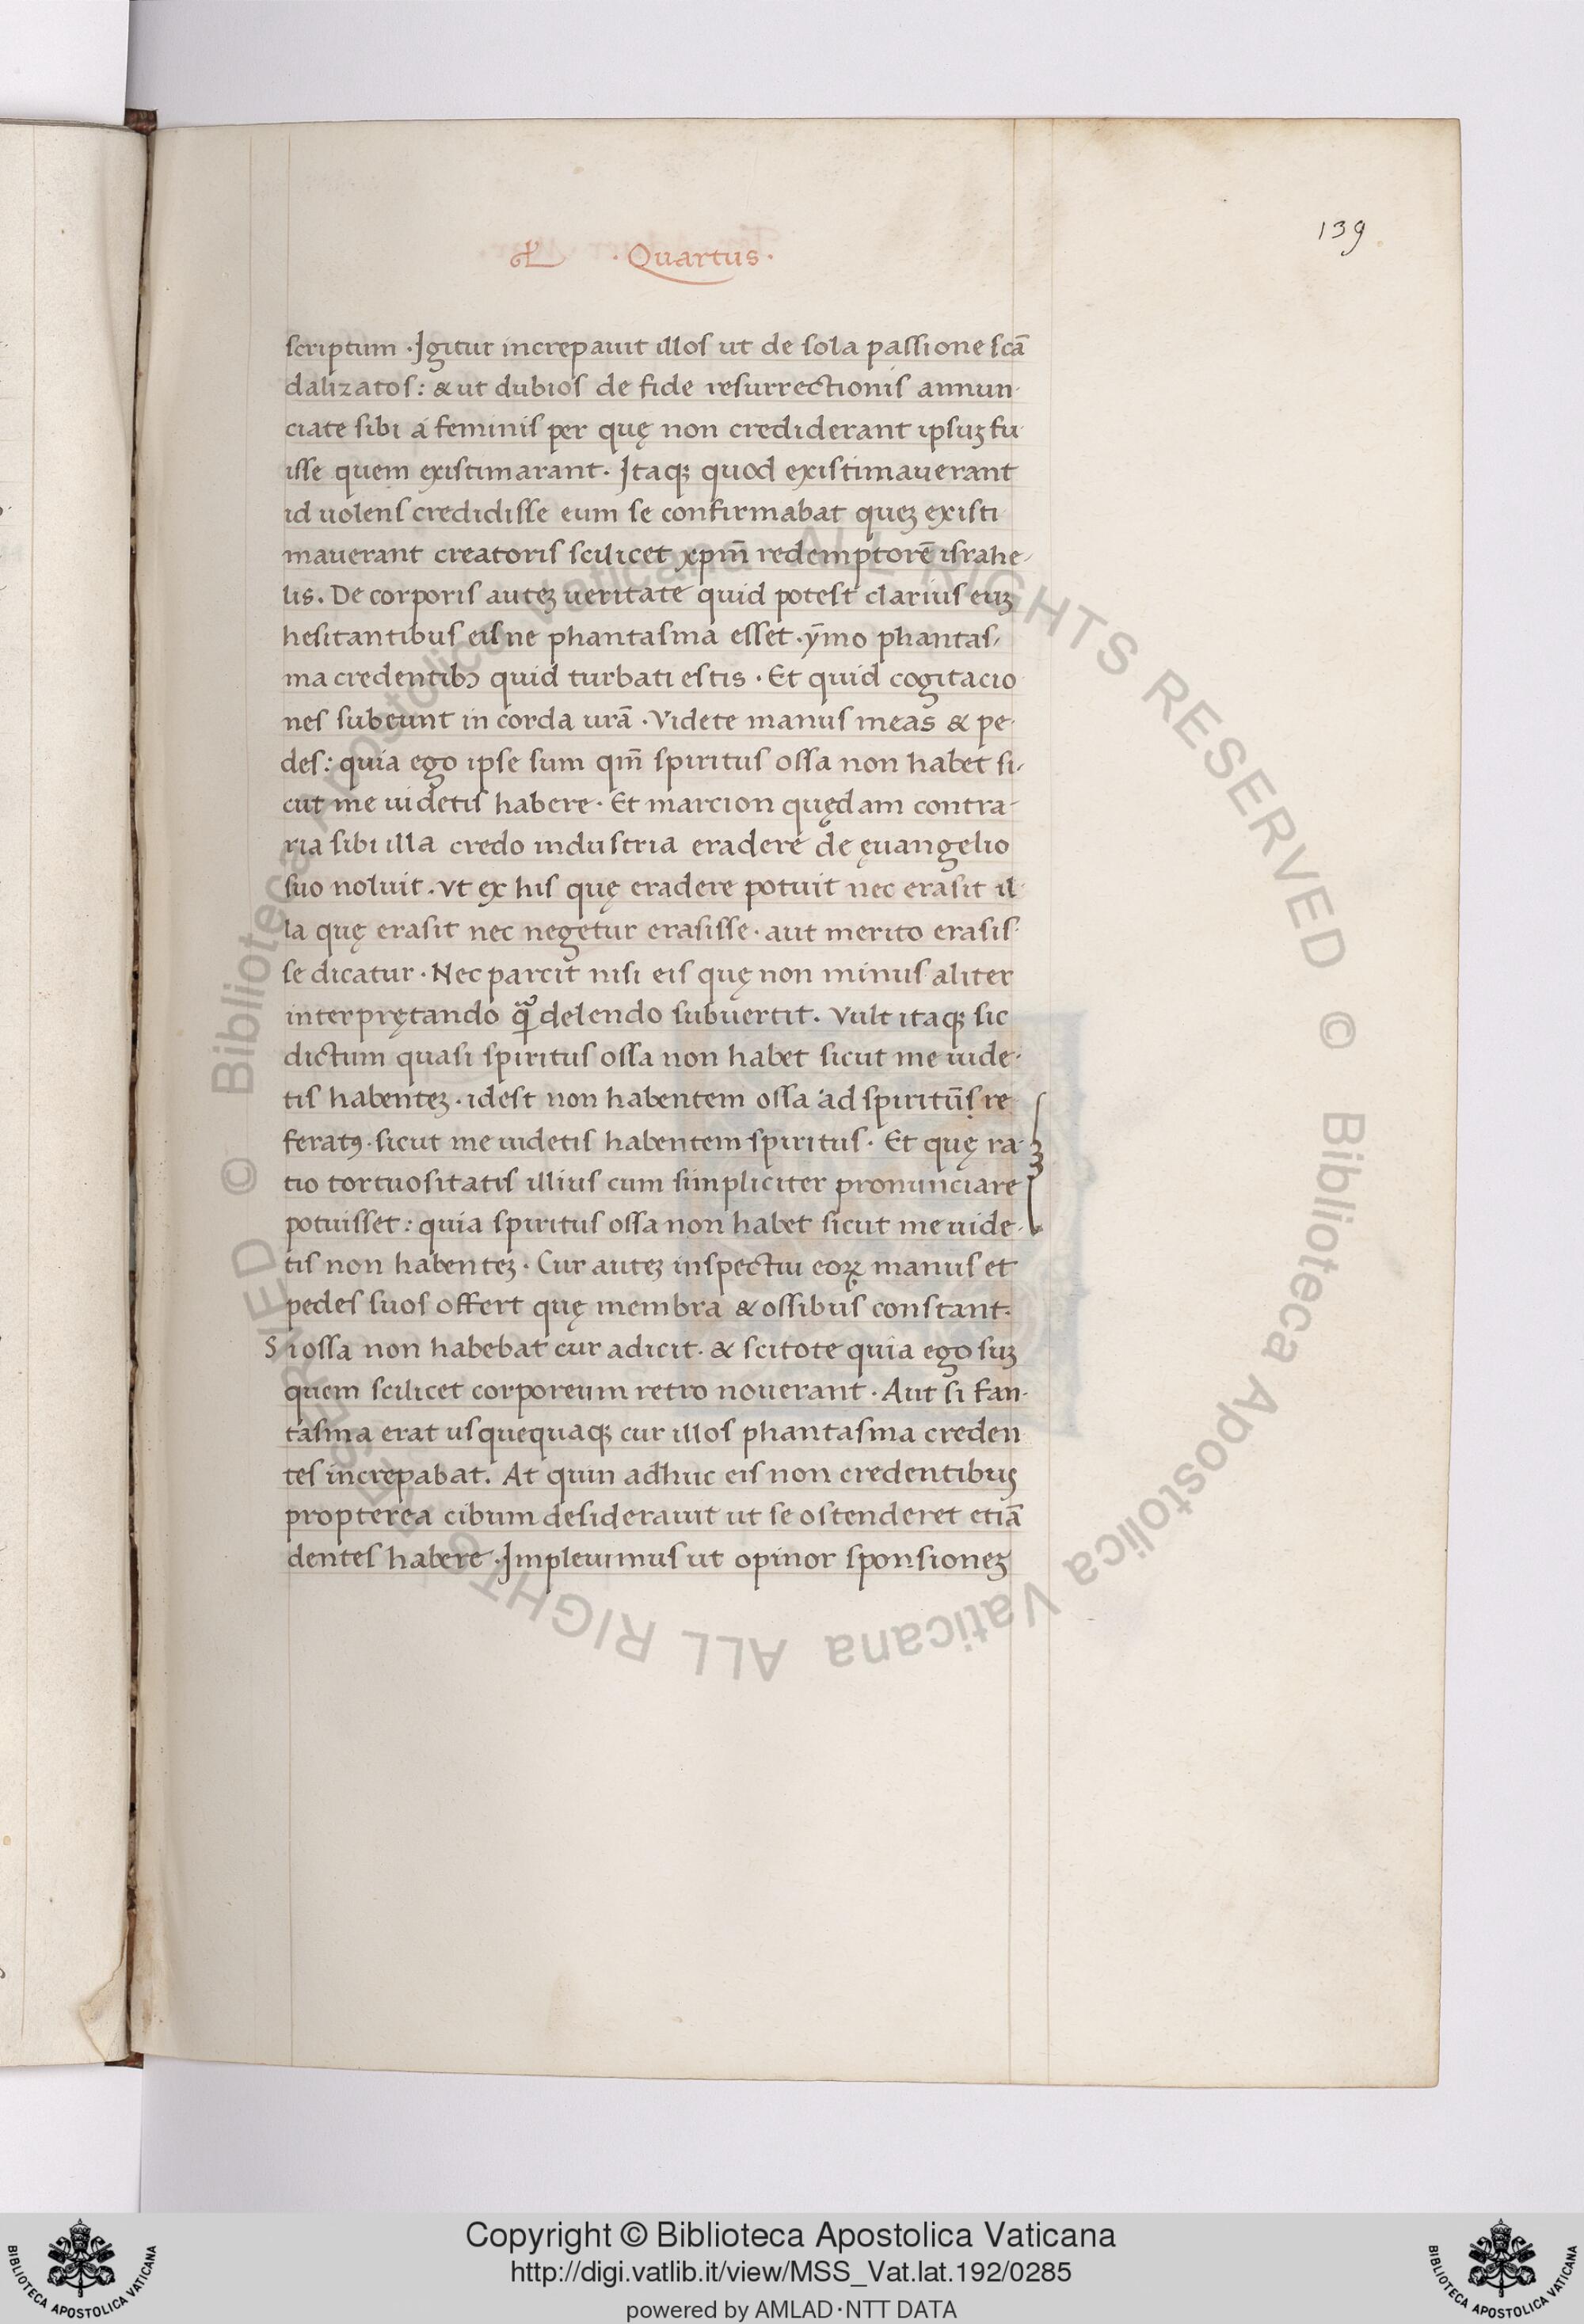 139
· Quartus ·
scriptum · Igitur increpauit illos ut de sola passione scā
dalizatos: & ut dubios de fide resurrectionis annun
ciate sibi á feminis per quę non crediderant ipsuꝫ fu
isse quem existimarant. Itaqꝫ quod existimauerant
id uolens credidisse eum se confirmabat queꝫ existi
mauerant creatoris scilicet xpm̄ redemptorē israhe-
lis. De corporis auteꝫ ueritate quid potest clarius euꝫ
hesitantibus eis ne phantasma esset · ȳmo phantas-
ma credentibꝫ quid turbati estis · Et quid cogitacio
nes subeunt in corda urā · Videte manus meas & pe-
des: quia ego ipse sum qm̄ spiritus ossa non habet si-
cut me uidetis habere · Et marcion quędam contra-
ria sibi illa credo industria eradere de ęuangelio
suo noluit. vt ex his quę eradere potuit nec erasit il-
la quę erasit nec negetur erasisse · aut merito erasis-
se dicatur · Nec parcit nisi eis quę non minus aliter
interprętando qᷓ delendo subuertit. Vult itaqꝫ sic
dictum quasi spiritus ossa non habet sicut me uide-
tis habenteꝫ · idest non habentem ossa ad spiritūs re
feratꝰ · sicut me uidetis habentem spiritus · Et quę ra-
tio tortuositatis illius cum simpliciter pronunciare
potuisset: quia spiritus ossa non habet sicut me uide-
tis non habenteꝫ · Cur auteꝫ inspectui eoꝝ manus et
pedes suos offert quę membra & ossibus constant.
Si ossa non habebat cur adicit · & scitote quia ego suꝫ
quem scilicet corporeum retro nouerant · Aut si fan-
tasma erat usquequaqꝫ cur illos phantasma creden
tes increpabat. At quin adhuc eis non credentibus
propterea cibum desiderauit ut se ostenderet etiā
dentes habere · Impleuimus ut opinor sponsioneꝫ
© Biblioteca Apostolica Vaticana ALL RIGHTS RESERVED © Biblioteca Apostolica Vaticana ALL RIGHTS RESERVED
Copyright © Biblioteca Apostolica Vaticana
http://digi.vatlib.it/view/MSS_Vat.lat.192/0285
powered by AMLAD · NTT DATA
BIBLIOTECA APOSTOLICA VATICANA
BIBLIOTECA APOSTOLICA VATICANA